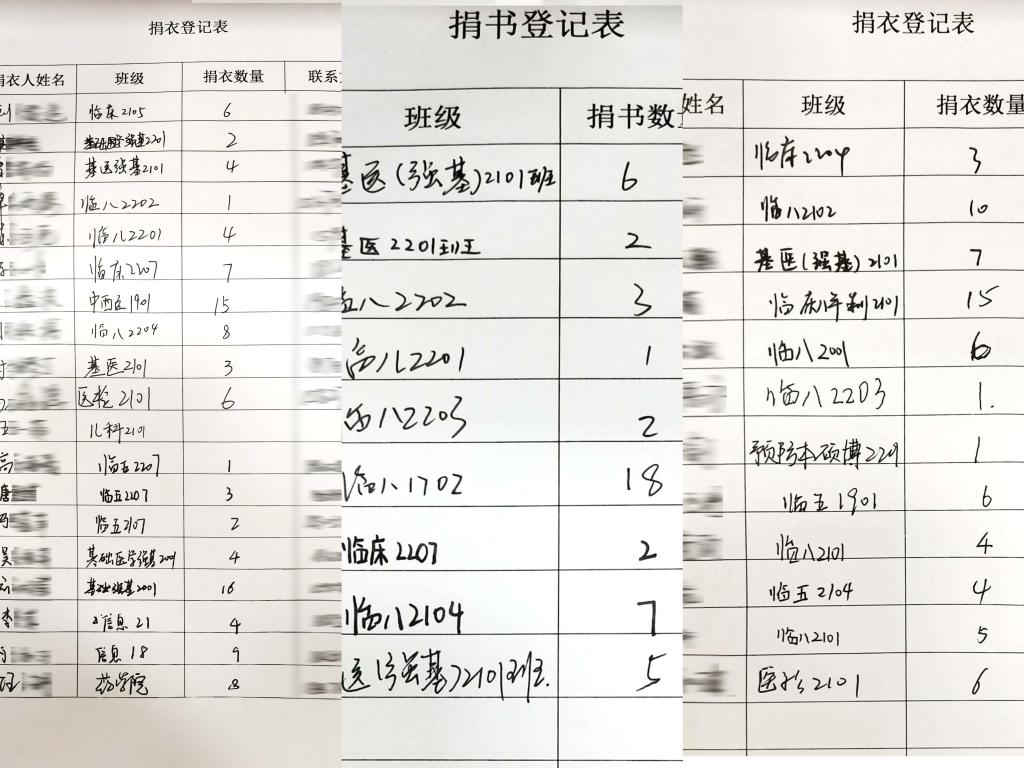 捐衣登记表
捐衣人姓名 班级 捐衣数量 联系
临床2105 6
2
基医强基2101 4
临八2202 1
临八2201 4
临床2207 7
中西医1901 15
临八2204 8
基医2101 3
医检2101 6
儿科2101
高 临五2207 1
唐 临五2207 3
临五2107 2
吴 基础医学强基2001 4
基础强基2001 16
李 信息21 4
信息18 9
药学院 8
捐书登记表
班级 捐书数
基医(强基)2101班 6
基医2201班 2
临八2202 3
临八2201 1
临八2203 2
临八1702 18
临床2207 2
临八2104 7
医(强基)2101班. 5
捐衣登记表
姓名 班级 捐衣数量
临床2204 3
临八2102 10
基医(强基)2101 7
临床八年制2101 15
临八2001 6
临八2203 1.
预防本硕博2201 1
临五1901 6
临八2101 4
临五2104 4
临八2101 5
医检2101 6